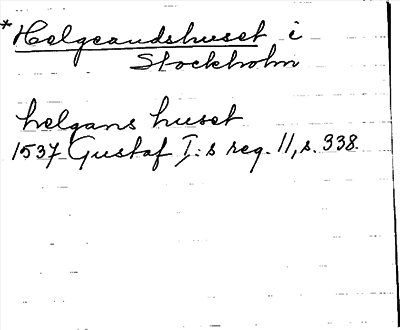 *Helgeandshuset i
Stockholm
helgans huset
1537 Gustaf I:s reg. 11, s. 338.